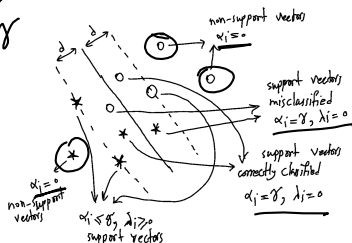 γ
d
d
non-support vectors
αᵢ = 0
support vectors
misclassified
αᵢ = γ, λᵢ = 0
support vectors
correctly classified
αᵢ = γ, λᵢ = 0
αᵢ = 0
non-support
vectors
αᵢ ≤ γ, λᵢ ≥ 0
support vectors